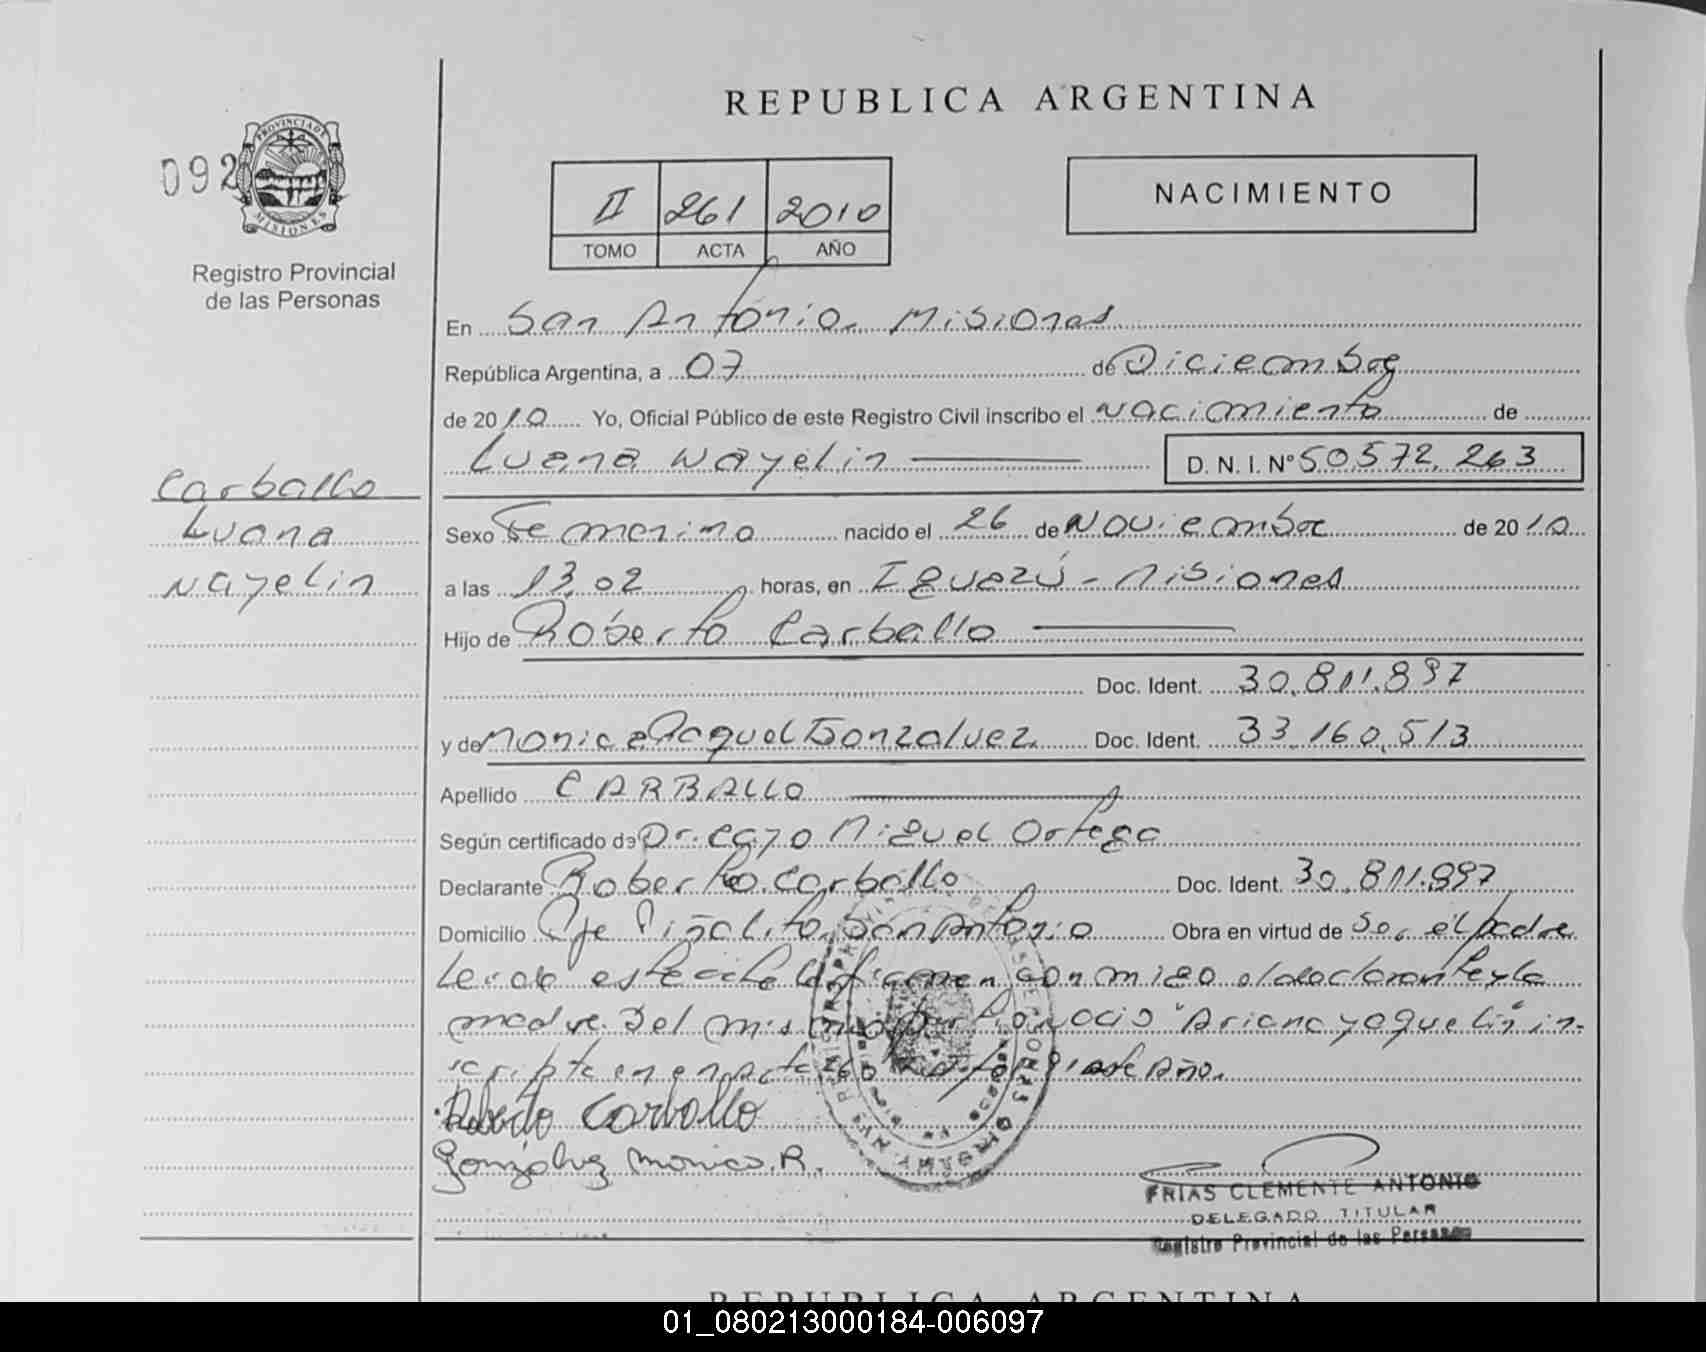 REPUBLICA ARGENTINA
092
PROVINCIA DE MISIONES
Registro Provincial
de las Personas
II 261 2010
TOMO ACTA AÑO
NACIMIENTO
En San Antonio. Misiones
República Argentina, a 07 de Diciembre
de 2010 Yo, Oficial Público de este Registro Civil inscribo el Nacimiento de
Luana Nayelin D. N. I. Nº 50.572.263
Carballo
Luana
Nayelin
Sexo Femenino nacido el 26 de Noviembre de 2010
a las 13,02 horas, en Iguazú - Misiones
Hijo de Roberto Carballo
Doc. Ident. 30.811.897
y de Monica Raquel Gonzalvez Doc. Ident. 33.160.513
Apellido CARBALLO
Según certificado de Dr. Cazo Miguel Ortega
Declarante Roberto Carballo Doc. Ident. 30.811.897
Domicilio Pje Piñalito San Antonio Obra en virtud de Ser el padre
Leida este acta la firman conmigo el declarante y la
madre. Del mismo parto nacio "Ariana yaquelin" in-
scripta en Acta 260 este Año.
Roberto Carballo
Gonzalvez Monica R.
FRIAS CLEMENTE ANTONIO
DELEGADO TITULAR
Registro Provincial de las Personas
REPUBLICA ARGENTINA
01_080213000184-006097